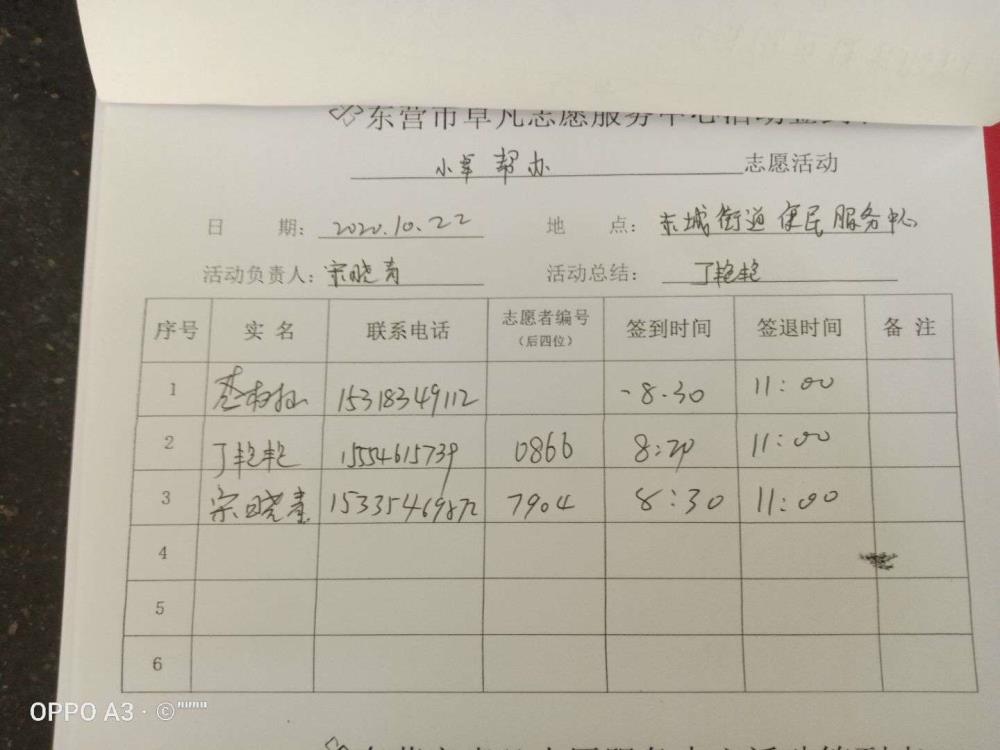 东营市草凡志愿服务中心活动签到
小草帮办 志愿活动
日 期: 2020.10.22 地 点: 东城街道便民服务中心
活动负责人: 宋晓青 活动总结: 丁艳艳
序号 实 名 联系电话 志愿者编号 签到时间 签退时间 备 注
(后四位)
1 15318349112 8.30 11:00
2 丁艳艳 15554615739 0866 8:20 11:00
3 宋晓青 15335469872 7904 8:30 11:00
4
5
6
OPPO A3 · ©""""